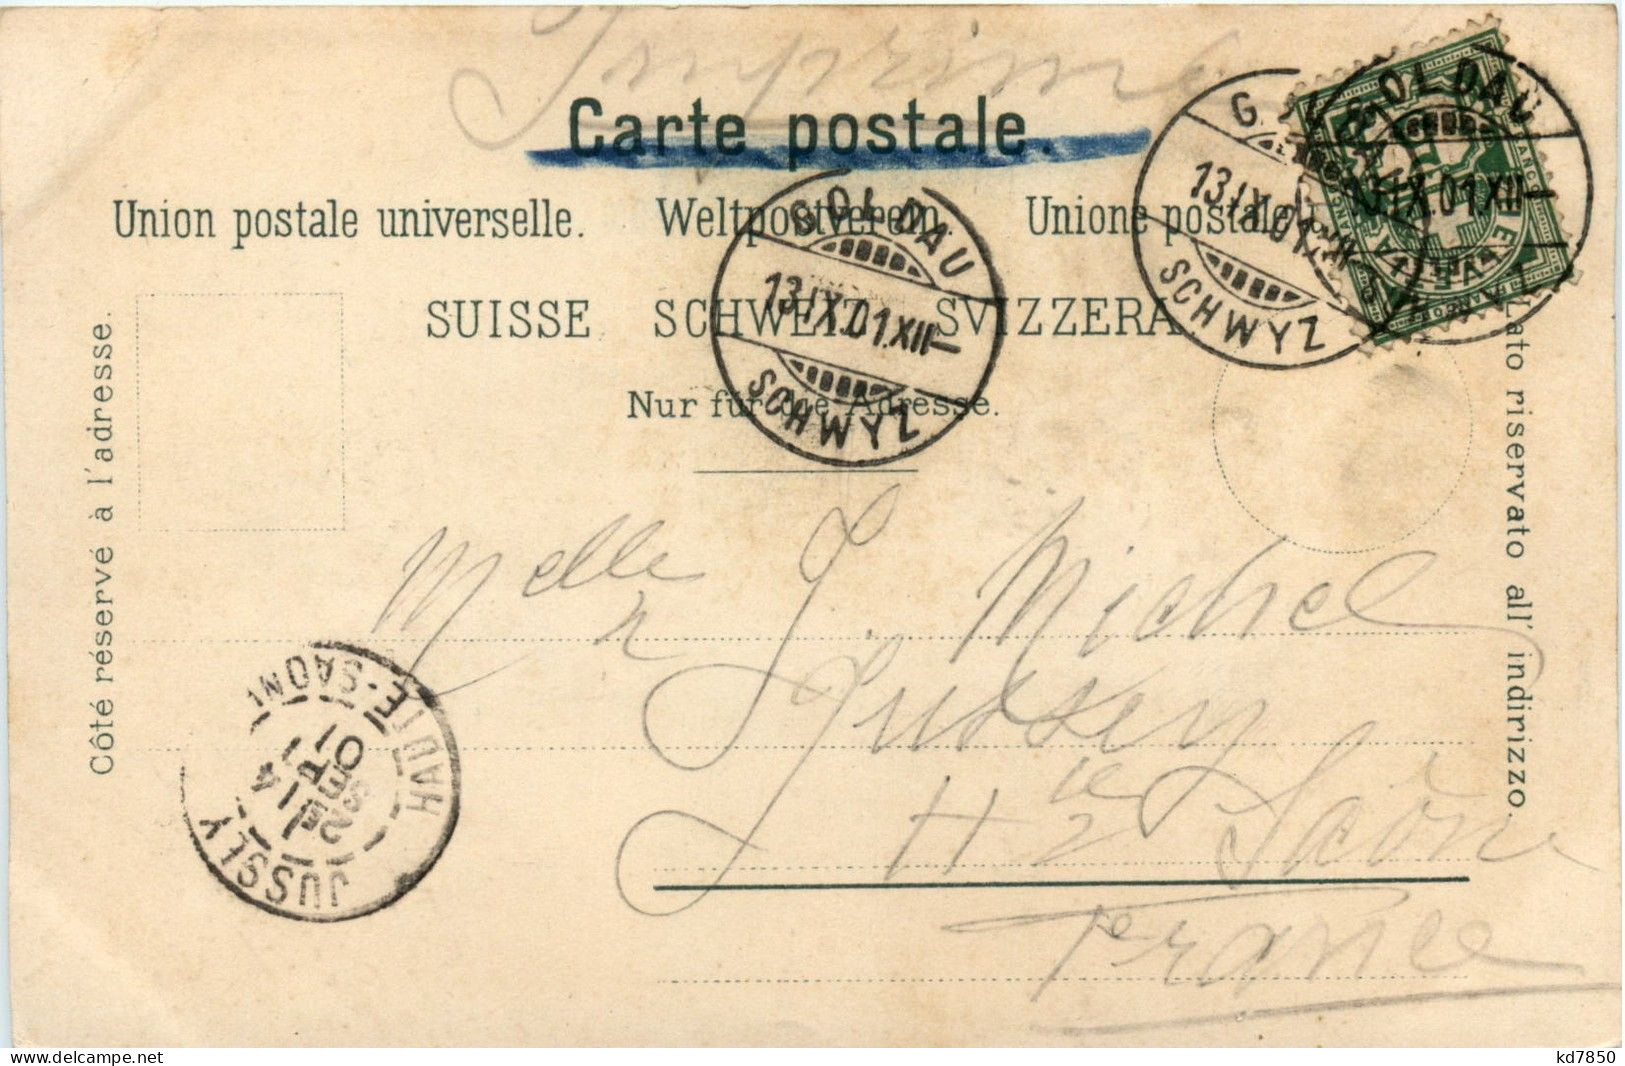 Imprimé
Carte postale.
Union postale universelle. Weltpostverein. Unione postale
SUISSE SCHWEIZ SVIZZERA
Nur für die Adresse.
Côté réservé à l'adresse.
Lato riservato all' indirizzo.
GOLDAU
13.IX.01.XII—
SCHWYZ
GOLDAU
13.IX.01.XII—
SCHWYZ
GOLDAU
13.IX.01.XII—
Melle J. Michel
Jussey
Hte Saône
France
JUSSEY
HAUTE-SAONE
14
SEPT
01
kd7850